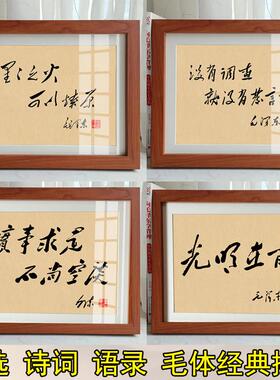 星之火
可以燎原
毛泽东
没有调查
就没有发言
毛泽东
實事求是
不尚空谈
光明在前
毛泽东
选 诗词 语录 毛体经典